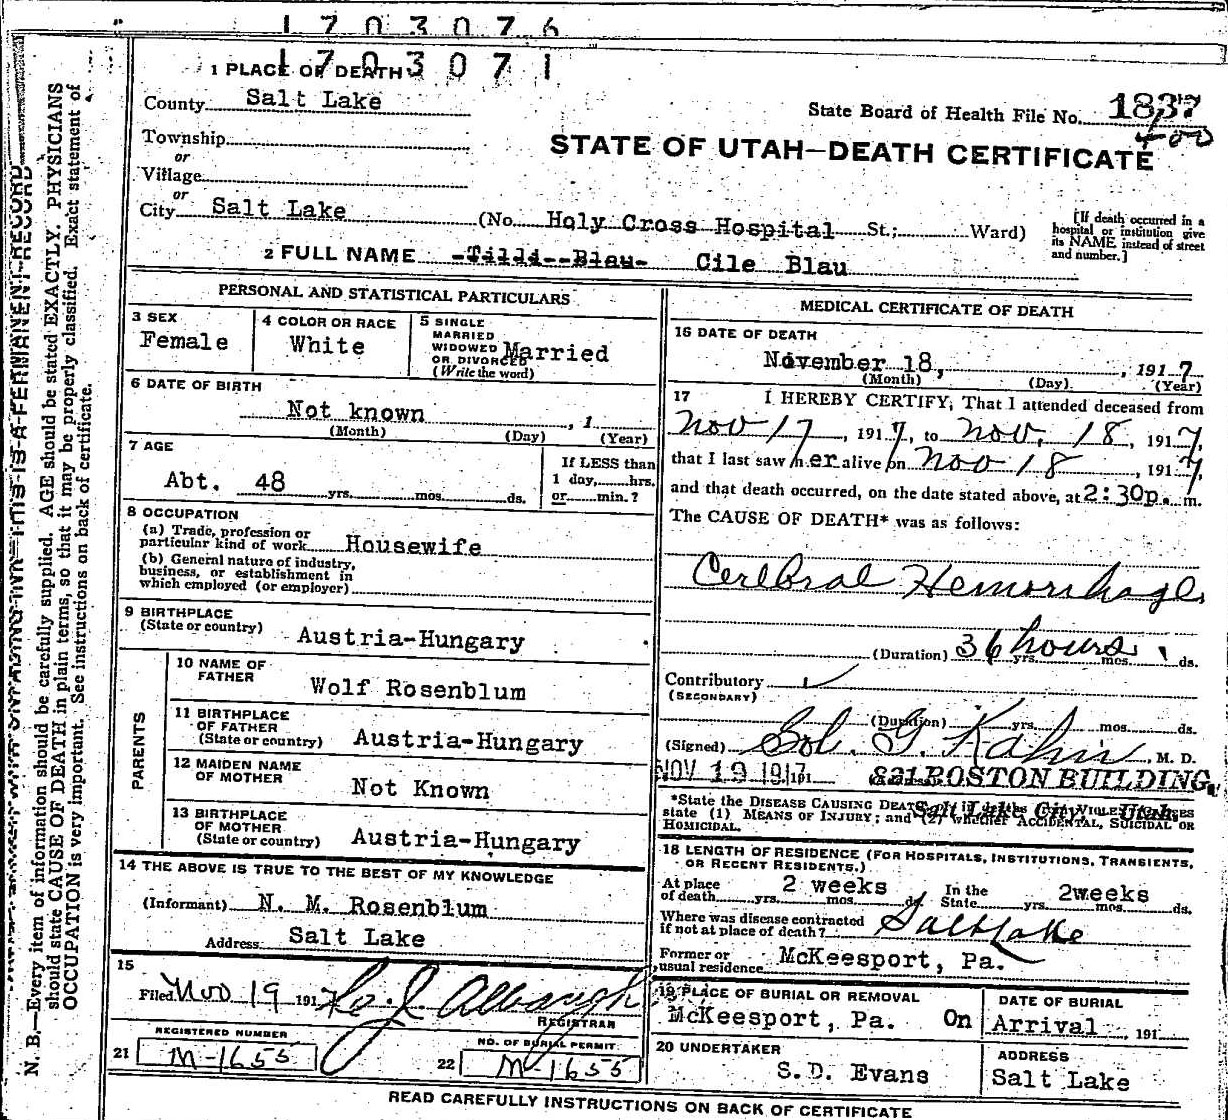 1703076
1703071
1 PLACE OF DEATH
County Salt Lake
State Board of Health File No. 1837
400
Township
or
Village
or
STATE OF UTAH—DEATH CERTIFICATE
City Salt Lake (No. Holy Cross Hospital St.; Ward)
[If death occurred in a hospital or institution give its NAME instead of street and number.]
2 FULL NAME Tilli Blau Cile Blau
PERSONAL AND STATISTICAL PARTICULARS
3 SEX
Female
4 COLOR OR RACE
White
5 SINGLE
MARRIED
WIDOWED
OR DIVORCED
(Write the word)
Married
6 DATE OF BIRTH
Not known , 1
(Month) (Day) (Year)
7 AGE
Abt. 48 yrs. mos. ds.
If LESS than
1 day, hrs.
or min.?
8 OCCUPATION
(a) Trade, profession or
particular kind of work Housewife
(b) General nature of industry,
business, or establishment in
which employed (or employer)
9 BIRTHPLACE
(State or country) Austria-Hungary
PARENTS
10 NAME OF
FATHER Wolf Rosenblum
11 BIRTHPLACE
OF FATHER
(State or country) Austria-Hungary
12 MAIDEN NAME
OF MOTHER Not Known
13 BIRTHPLACE
OF MOTHER
(State or country) Austria-Hungary
14 THE ABOVE IS TRUE TO THE BEST OF MY KNOWLEDGE
(Informant) N. M. Rosenblum
Address Salt Lake
15
Filed Nov 19 1917
REGISTRAR
REGISTERED NUMBER
21 M-1655
NO. OF BURIAL PERMIT
22 M-1655
MEDICAL CERTIFICATE OF DEATH
16 DATE OF DEATH
November 18, , 1917
(Month) (Day) (Year)
17 I HEREBY CERTIFY, That I attended deceased from
Nov 17 , 1917, to Nov. 18, 1917,
that I last saw her alive on Nov 18 , 1917,
and that death occurred, on the date stated above, at 2:30p. m.
The CAUSE OF DEATH* was as follows:
Cerebral Hemorrhage
(Duration) 36 hours yrs. mos. ds.
Contributory
(SECONDARY)
(Duration) yrs. mos. ds.
(Signed) Sol. G. Kahn, M. D.
NOV 19 1917 191 821 BOSTON BUILDING,
Salt Lake City, Utah
*State the DISEASE CAUSING DEATH, or, in deaths from VIOLENT CAUSES
state (1) MEANS OF INJURY; and (2) whether ACCIDENTAL, SUICIDAL OR
HOMICIDAL.
18 LENGTH OF RESIDENCE (FOR HOSPITALS, INSTITUTIONS, TRANSIENTS,
OR RECENT RESIDENTS.)
At place
of death 2 weeks yrs. mos. ds.
In the
State 2weeks yrs. mos. ds.
Where was disease contracted
if not at place of death? Salt Lake
Former or
usual residence McKeesport, Pa.
19 PLACE OF BURIAL OR REMOVAL
McKeesport, Pa.
DATE OF BURIAL
On Arrival , 191
20 UNDERTAKER
S.D. Evans
ADDRESS
Salt Lake
READ CAREFULLY INSTRUCTIONS ON BACK OF CERTIFICATE
N. B.—Every item of information should be carefully supplied. AGE should be stated EXACTLY. PHYSICIANS
should state CAUSE OF DEATH in plain terms, so that it may be properly classified. Exact statement of
OCCUPATION is very important. See instructions on back of certificate.